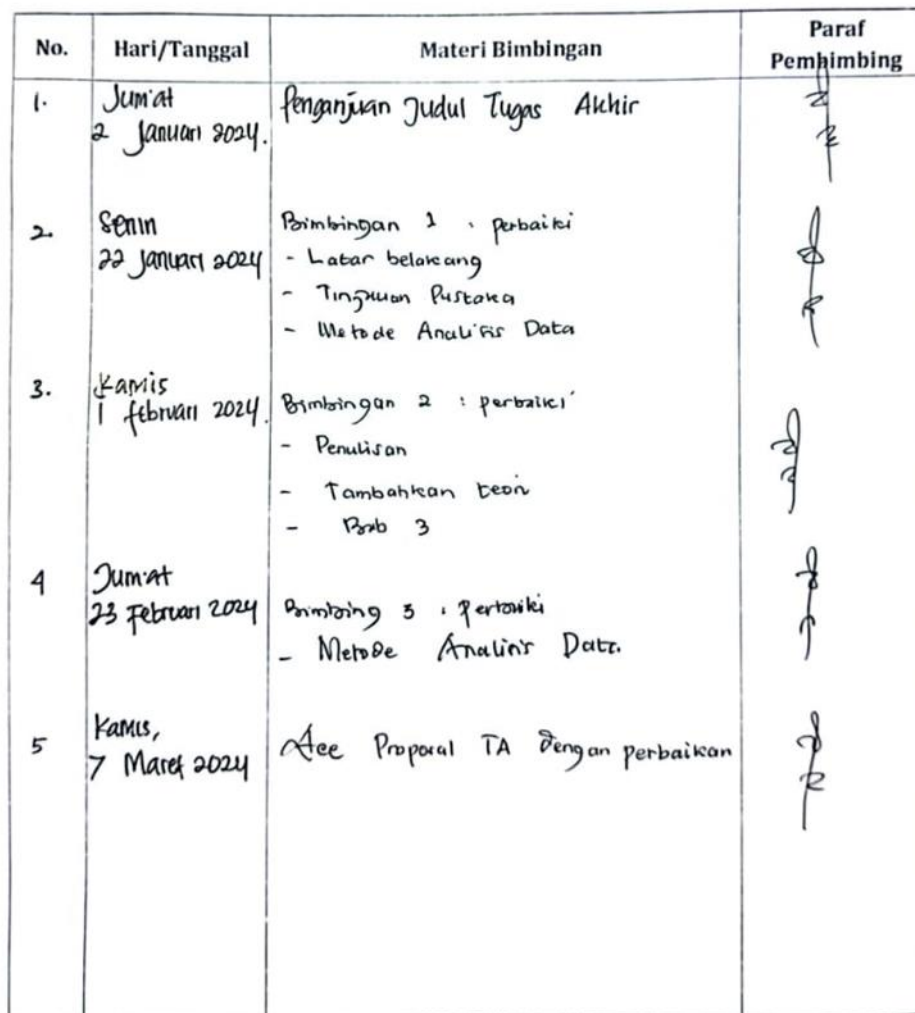 No. Hari/Tanggal Materi Bimbingan Paraf Pembimbing
1. Jum'at Penganjuan Judul Tugas Akhir
2 Januari 2024.
2. Senin Bimbingan 1 : perbaiki
22 Januari 2024 - Latar belakang
- Tinjauan Pustaka
- Metode Analisis Data
3. Kamis
1 februari 2024. Bimbingan 2 : perbaiki
- Penulisan
- Tambahkan teori
- Bab 3
4 Jum'at
23 Februari 2024 Bimbing 3 : Perbaiki
- Metode Analisis Data.
5 Kamis, Acc Proposal TA dengan perbaikan
7 Maret 2024